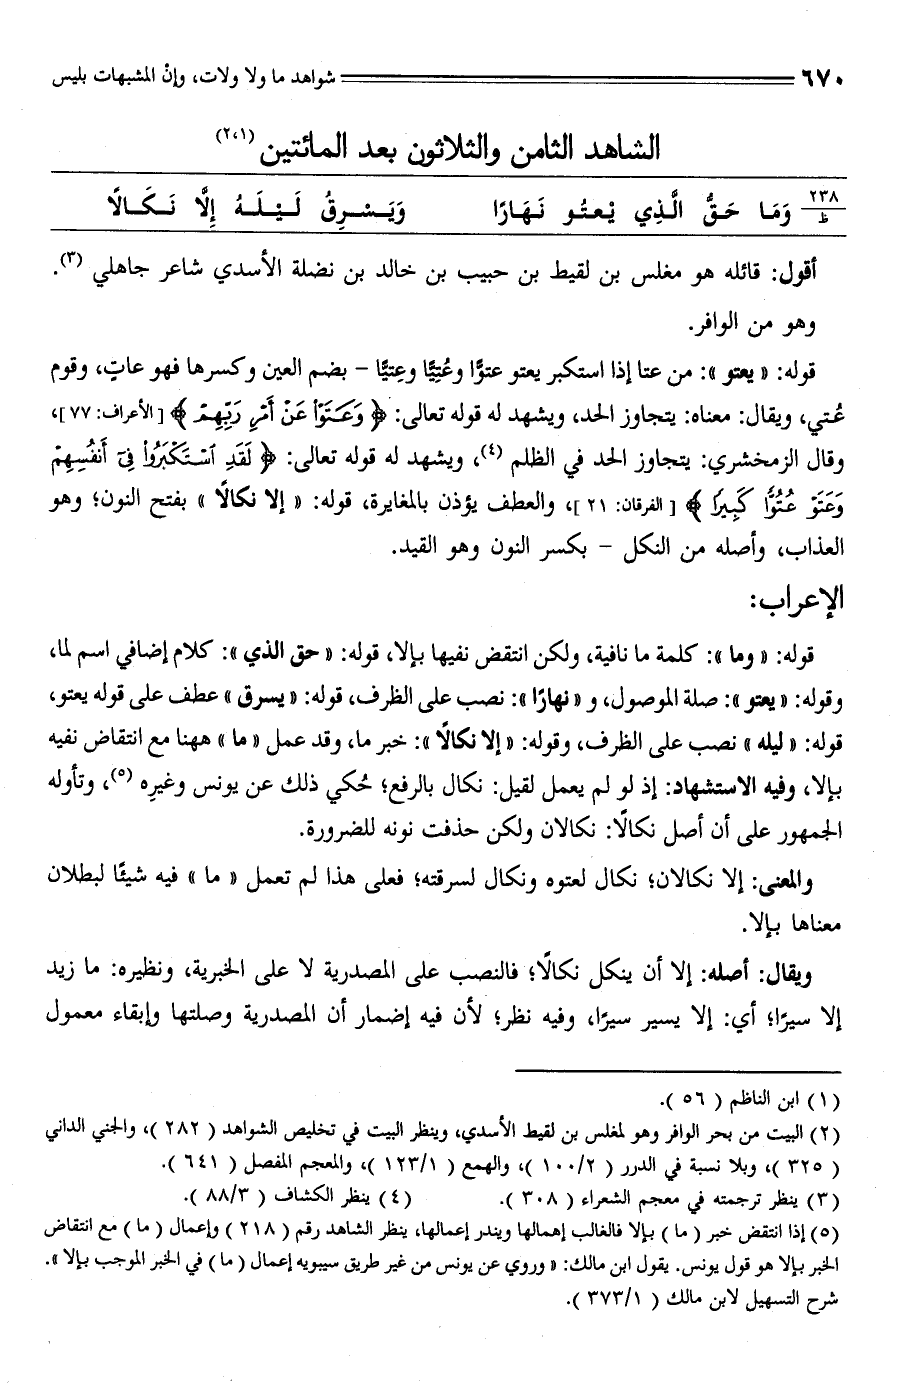 ٦٧٠ شواهد ما ولا ولات، وإنْ المشبهات بليس
الشاهد الثامن والثلاثون بعد المائتين (٢،١)
٢٣٨ ظ وَمَا حَقُّ الَّذِي يَعْتُو نَهَارًا وَيَسْرِقُ لَيْلَهُ إِلَّا نَكَالًا
أقول: قائله هو مغلس بن لقيط بن حبيب بن خالد بن نضلة الأسدي شاعر جاهلي (٣).
وهو من الوافر.
قوله: « يعتو »: من عتا إذا استكبر يعتو عتوًّا وعُتِيًّا وعِتيًّا – بضم العين وكسرها فهو عاتٍ، وقوم
عُتي، ويقال: معناه: يتجاوز الحد، ويشهد له قوله تعالى: ﴿ وَعَتَوْا عَنْ أَمْرِ رَبِّهِمْ ﴾ [ الأعراف: ٧٧ ]،
وقال الزمخشري: يتجاوز الحد في الظلم (٤)، ويشهد له قوله تعالى: ﴿ لَقَدِ اسْتَكْبَرُوا فِي أَنفُسِهِمْ
وَعَتَوْ عُتُوًّا كَبِيرًا ﴾ [ الفرقان: ٢١ ]، والعطف يؤذن بالمغايرة، قوله: « إلا نكالًا » بفتح النون؛ وهو
العذاب، وأصله من النكل – بكسر النون وهو القيد.
الإعراب:
قوله: « وما »: كلمة ما نافية، ولكن انتقض نفيها بإلا، قوله: « حق الذي »: كلام إضافي اسم لما،
وقوله: « يعتو »: صلة الموصول، و « نهارًا »: نصب على الظرف، قوله: « يسرق » عطف على قوله يعتو،
قوله: « ليله » نصب على الظرف، وقوله: « إلا نكالًا »: خبر ما، وقد عمل « ما » ههنا مع انتقاض نفيه
بإلا، وفيه الاستشهاد: إذ لو لم يعمل لقيل: نكال بالرفع؛ حُكي ذلك عن يونس وغيرِه (٥)، وتأوله
الجمهور على أن أصل نكالًا: نكالان ولكن حذفت نونه للضرورة.
والمعنى: إلا نكالان؛ نكال لعتوه ونكال لسرقته؛ فعلى هذا لم تعمل « ما » فيه شيئًا لبطلان
معناها بإلا.
ويقال: أصله: إلا أن ينكل نكالًا؛ فالنصب على المصدرية لا على الخبرية، ونظيره: ما زيد
إلا سيرًا؛ أي: إلا يسير سيرًا، وفيه نظر؛ لأن فيه إضمار أن المصدرية وصلتها وإبقاء معمول
(١) ابن الناظم ( ٥٦ ).
(٢) البيت من بحر الوافر وهو لمغلس بن لقيط الأسدي، وينظر البيت في تخليص الشواهد ( ٢٨٢ )، والجنى الداني
( ٣٢٥ )، وبلا نسبة في الدرر ( ١٠٠/٢ )، والهمع ( ١٢٣/١ )، والمعجم المفصل ( ٦٤١ ).
(٣) ينظر ترجمته في معجم الشعراء ( ٣٠٨ ). (٤) ينظر الكشاف ( ٨٨/٣ ).
(٥) إذا انتقض خبر ( ما ) بإلا فالغالب إهمالها ويندر إعمالها، ينظر الشاهد رقم ( ٢١٨ ) وإعمال ( ما ) مع انتقاض
الخبر بإلا هو قول يونس. يقول ابن مالك: « وروي عن يونس من غير طريق سيبويه إعمال ( ما ) في الخبر الموجب بإلا ».
شرح التسهيل لابن مالك ( ٣٧٣/١ ).